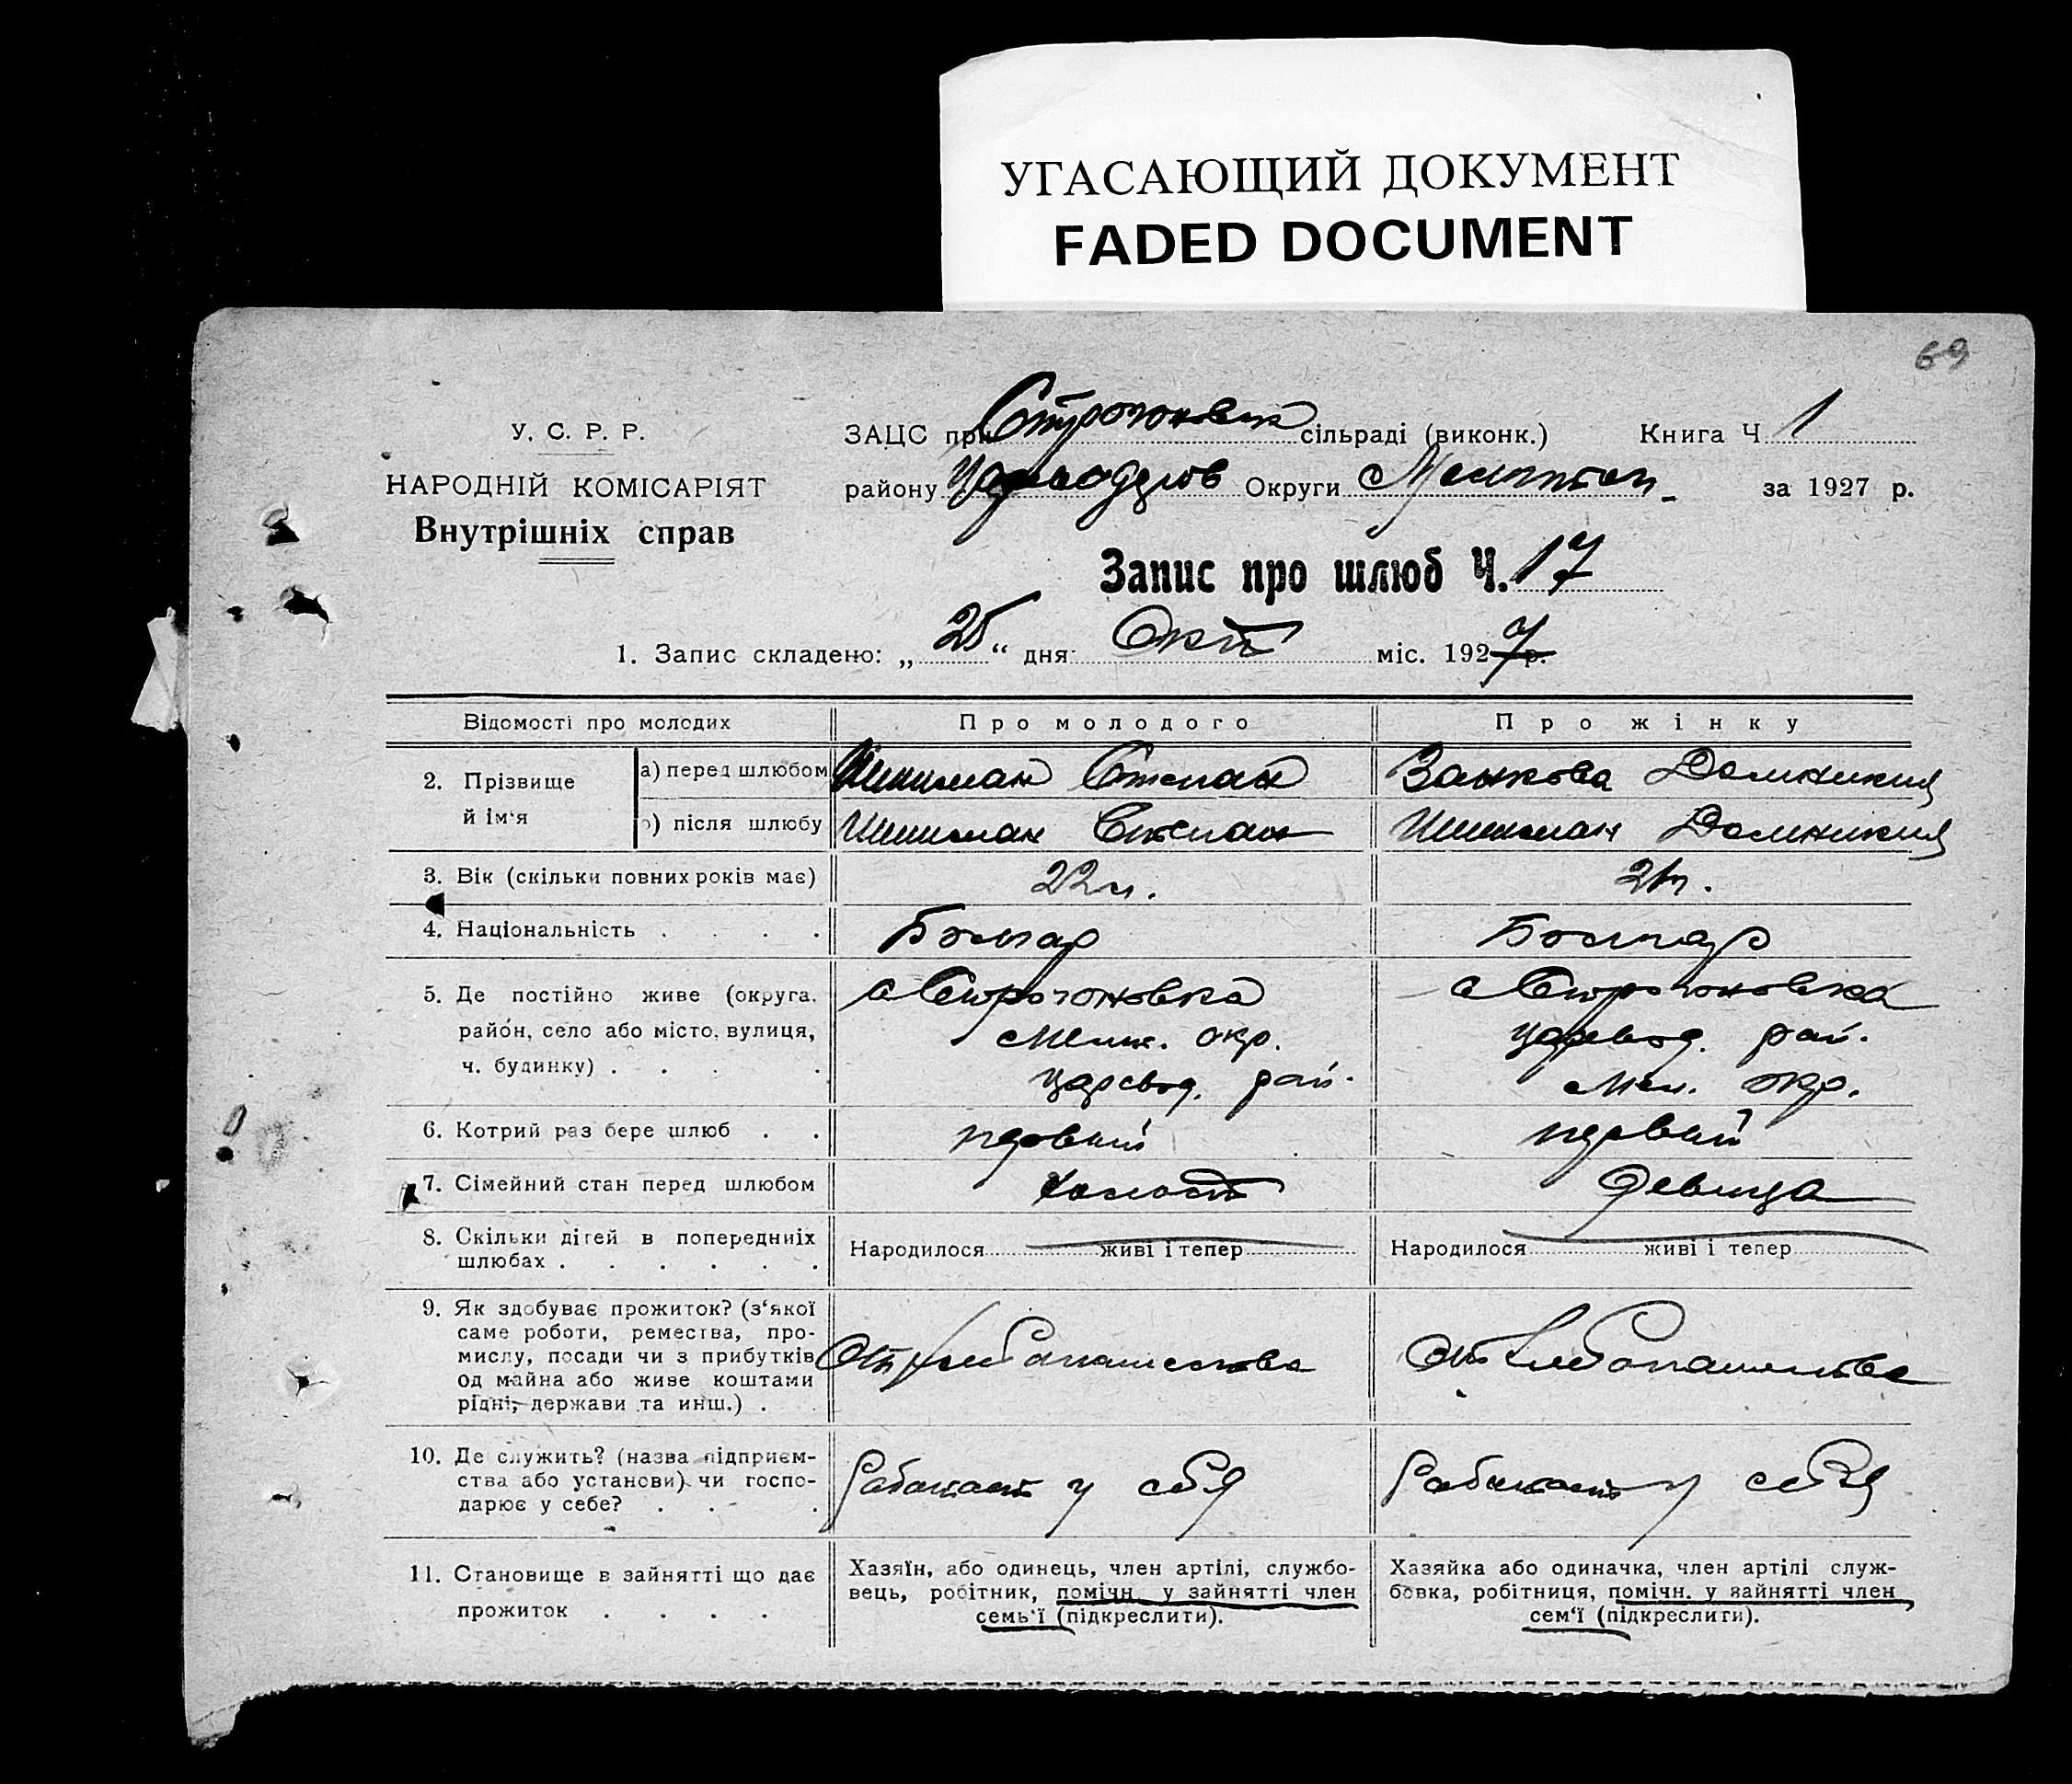 УГАСАЮЩИЙ ДОКУМЕНТ
FADED DOCUMENT
69
У. С. Р. Р.
НАРОДНІЙ КОМІСАРІЯТ
Внутрішніх справ
ЗАЦС при Строгоновск сільраді (виконк.) Книга Ч 1
району Округи Мелитоп. за 1927 р.
Запис про шлюб Ч. 17
1. Запис складено: „25“ дня Окт міс. 1927 р.
Відомості про молодих Про молодого Про жінку
2. Прізвище й ім'я
а) перед шлюбом Шишман Степан Занкова Домникия
б) після шлюбу Шишман Степан Шишман Домникия
3. Вік (скільки повних років має) 22 л. 21 л.
4. Національність . . . . Болгар Болгар
5. Де постійно живе (округа, с Строгоновка с Строгоновка
район, село або місто, вулиця, Мелит. окр. Царевод. рай.
ч. будинку) . . . . Царевод. рай. Мел. окр.
6. Котрий раз бере шлюб . . первый первый
7. Сімейний стан перед шлюбом холост девица
8. Скільки дітей в попередниіх Народилося живі і тепер Народилося живі і тепер
шлюбах . . . . . .
9. Як здобуває прожиток? (з'якої
саме роботи, ремества, про-
мислу, посади чи з прибутків От хлебопашества От хлебопашества
од майна або живе коштами
рідні, держави та инш.) .
10. Де служить? (назва підприєм-
ства або установи) чи госпо- Работает у себя Работает у себя
дарює у себе? . . .
11. Становище в зайнятті що дає Хазяїн, або одинець, член артілі, службо- Хазяйка або одиначка, член артілі служ-
вець, робітник, помічн. у зайнятті член бовка, робітниця, помічн. у зайнятті член
прожиток . . . . семь'ї (підкреслити). сем'ї (підкреслити).